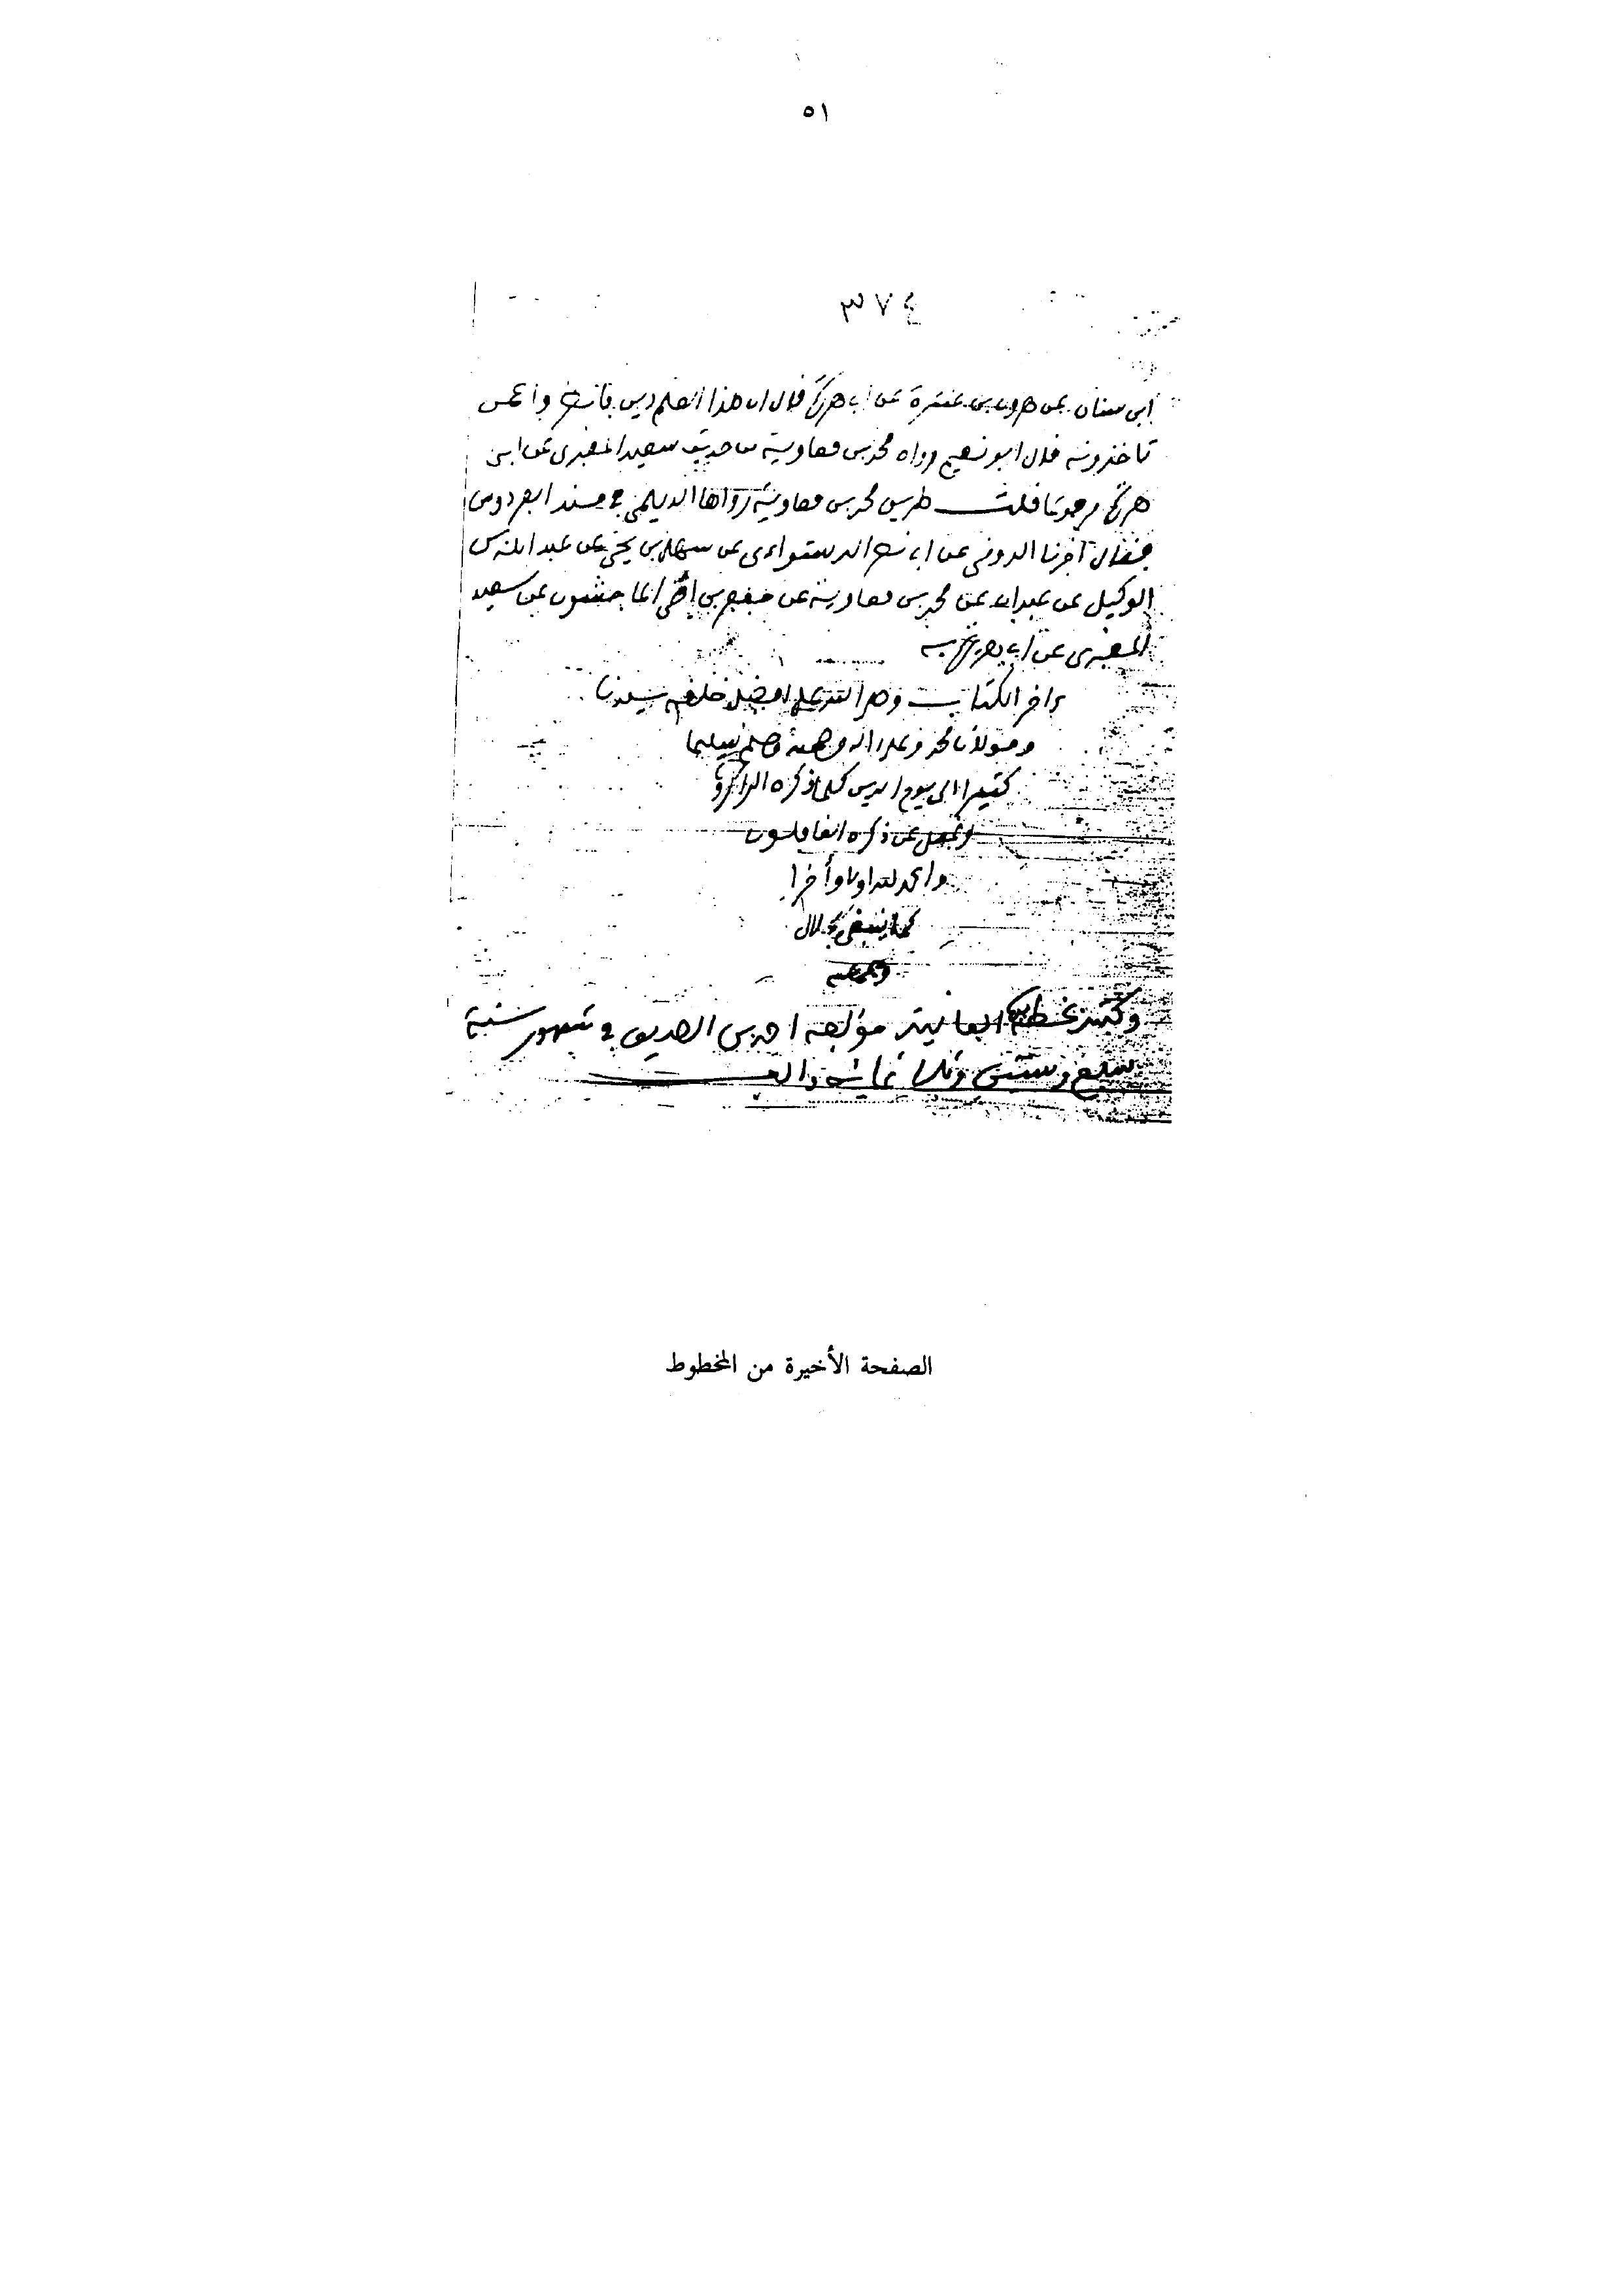 ٥١
٣٧٤
أبي سنان عن هرون بن عنترة عن أبي هريرة قال ان هذا العلم دين فانظروا عمن
تاخذونه قال ابو نعيم ورواه محمد بن معاوية من حديث سعيد المقبري عن ابي
هريرة مرفوعا قلت طريق محمد بن معاوية رواها الديلمي في مسند الفردوس
فقال أخبرنا الدوني عن ابي نصر الدستواءي عن سهل بن يحيى عن عبد الله بن
الوكيل عن عبد الله عن محمد بن معاوية عن جعفر بن الماجشون عن سعيد
المقبري عن أبي هريرة به
آخر الكتاب وصلى الله على افضل خلقه سيدنا
ومولانا محمد وعلى اله وصحبه وسلم تسليما
كثيرا الى يوم الدين كلما ذكره الذاكرون
وغفل عن ذكره الغافلون
والحمد لله اولا وأخرا
كما ينبغي لجلال
وجهه
وكتبه بخطه الفانية مؤلفه احمد بن الصديق في شهور سنة
سبع وستين وثلاثمائة والف
الصفحة الأخيرة من المخطوط